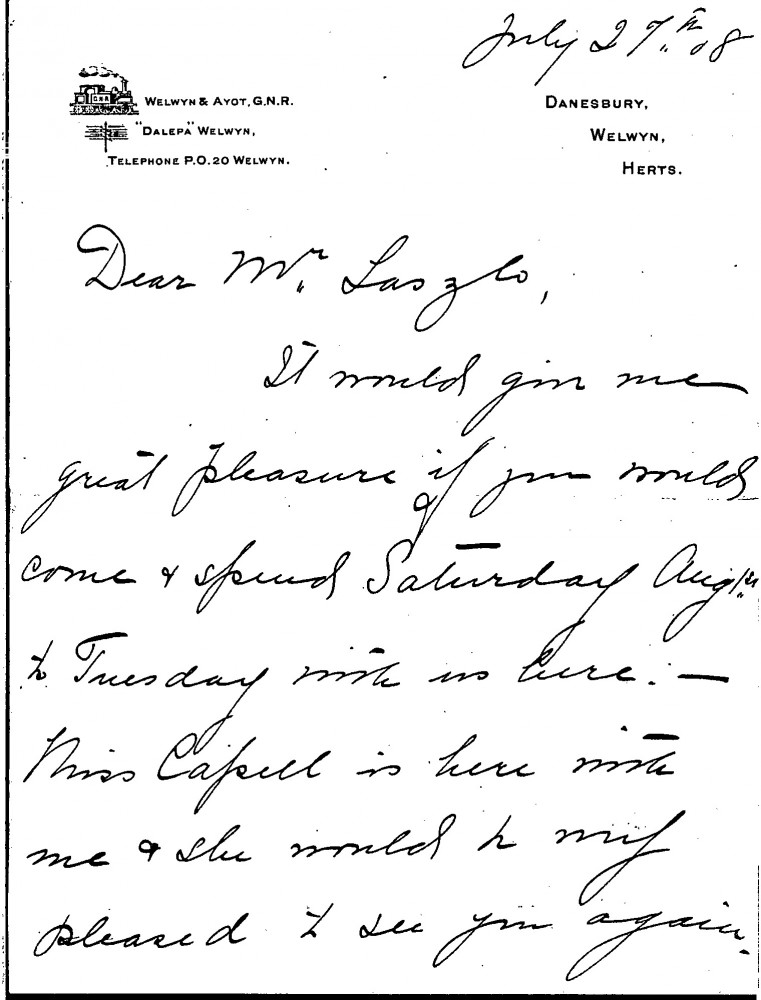 July 27th 08
WELWYN & AYOT, G.N.R.
"DALEPA" WELWYN,
TELEPHONE P.O. 20 WELWYN.
DANESBURY,
WELWYN,
HERTS.
G.N.R
Dear Mr. Laszlo,
It would give me
great pleasure if you would
come & spend Saturday Aug 1st
to Tuesday with us here. —
Miss Capell is here with
me & she would be very
pleased to see you again.